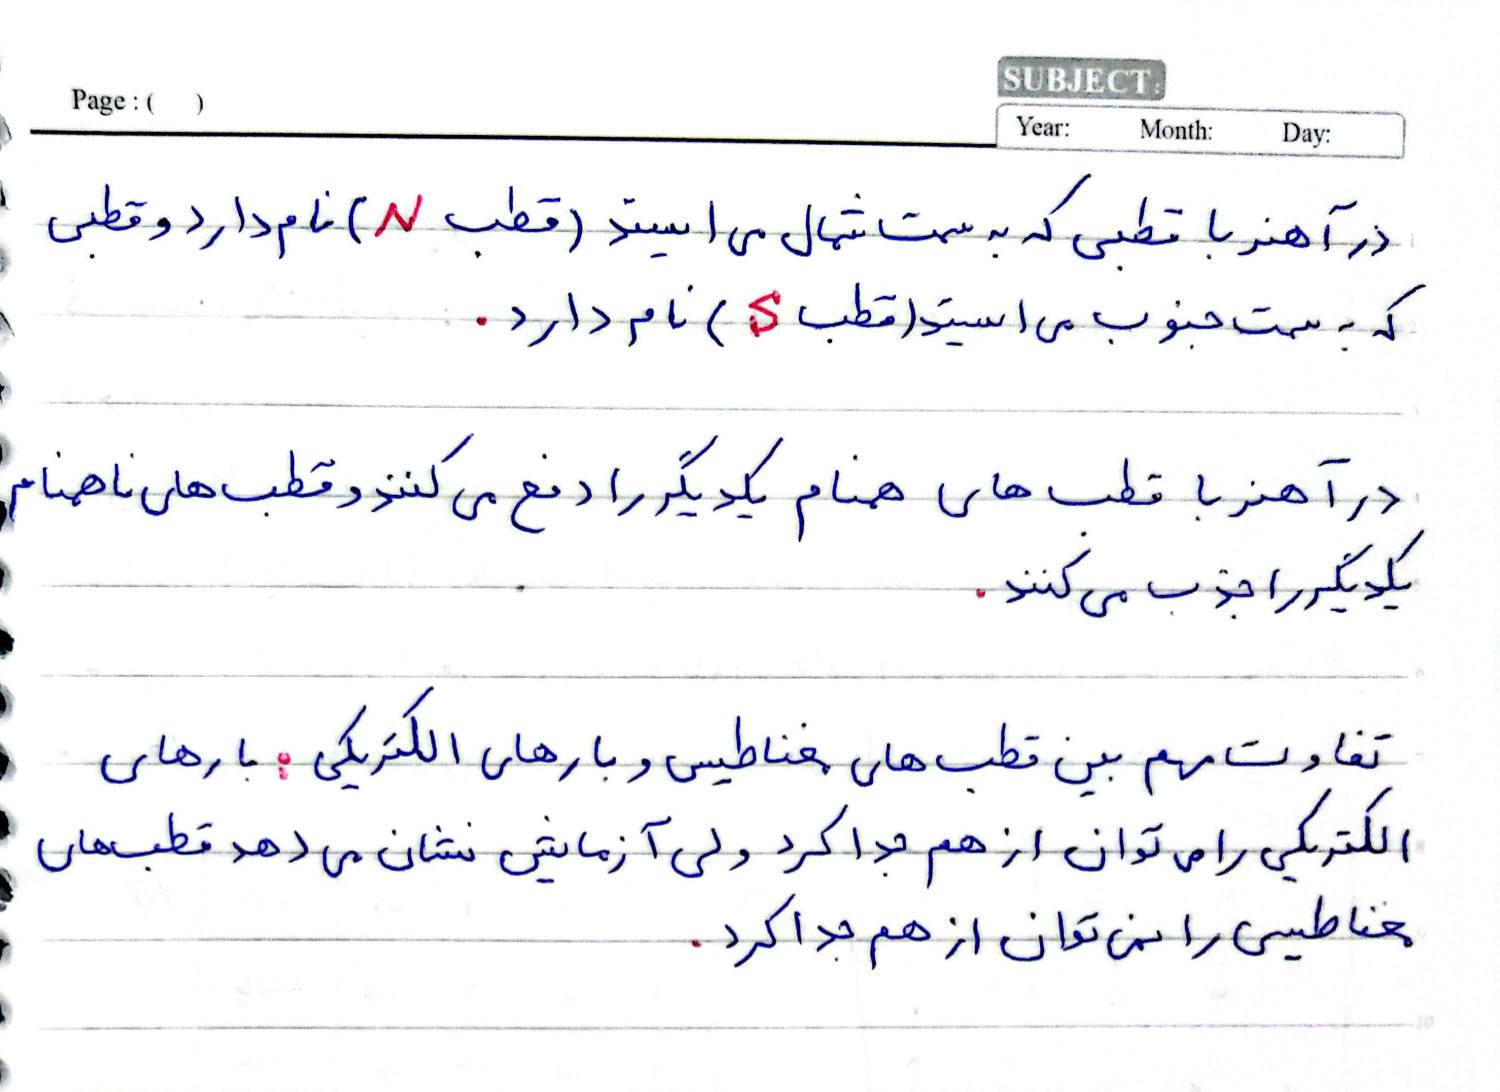 SUBJECT:
Page : ( )
Year: Month: Day:
در آهنربا قطبی که به سمت شمال می ایستد (قطب N) نام دارد و قطبی
که به سمت جنوب می ایستد (قطب S) نام دارد.
در آهنربا قطب های همنام یکدیگر را دفع می کنند و قطب های ناهمنام
یکدیگر را جذب می کنند.
تفاوت مهم بین قطب های مغناطیسی و بارهای الکتریکی : بارهای
الکتریکی را می توان از هم جدا کرد ولی آزمایش نشان می دهد قطب های
مغناطیسی را نمی توان از هم جدا کرد.